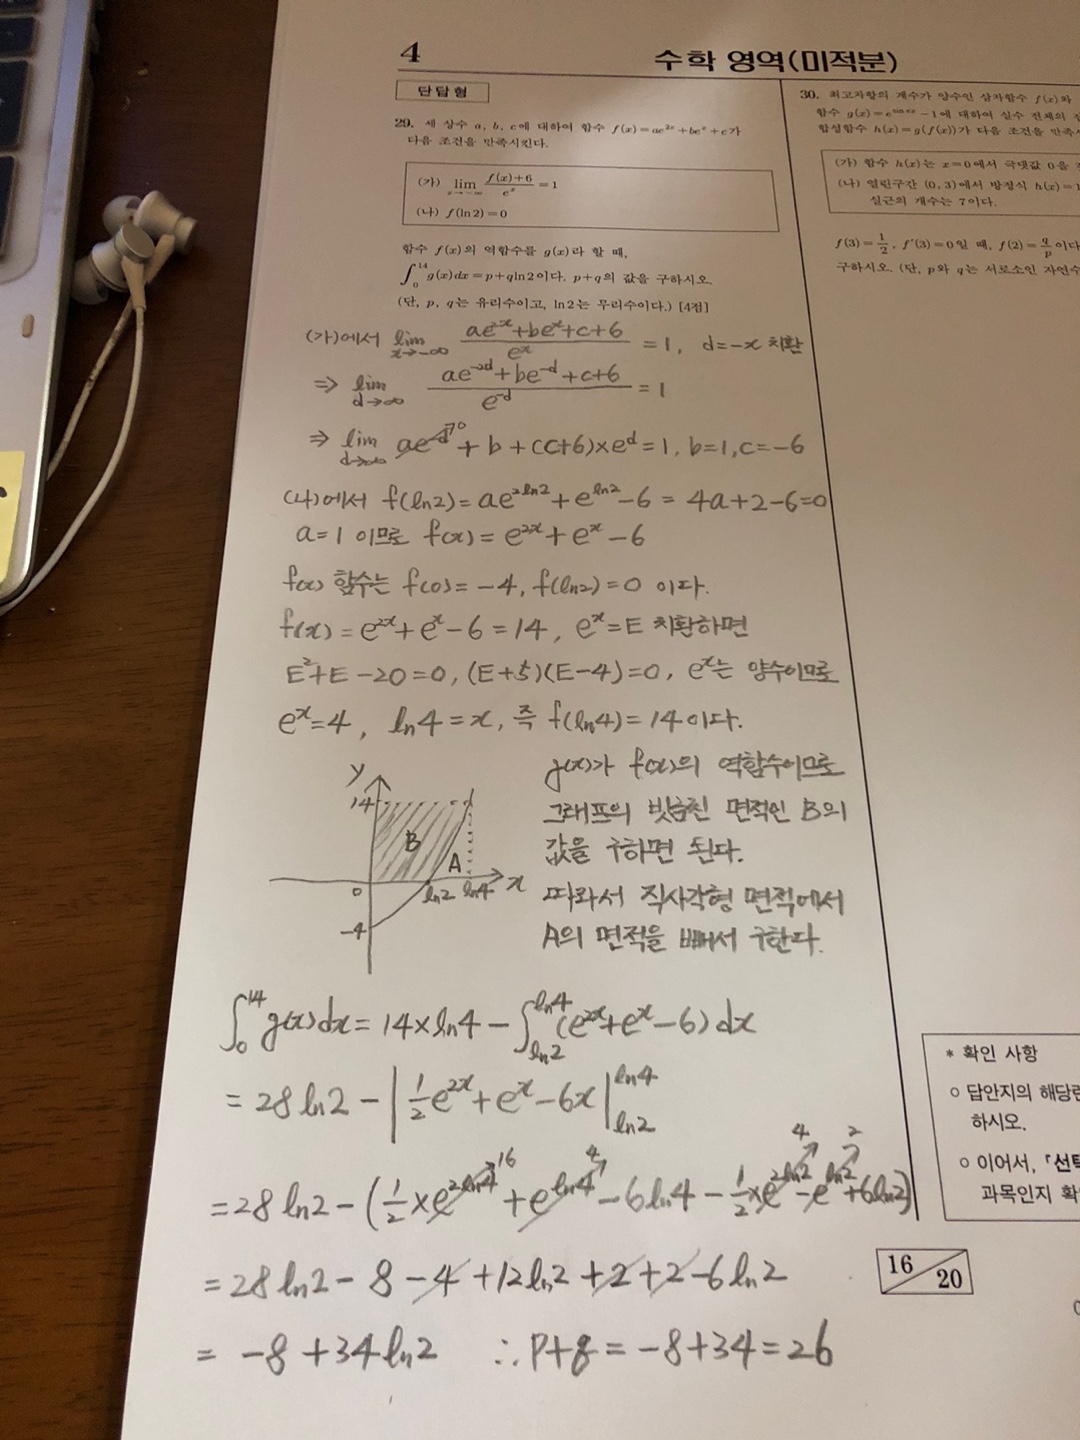 4
수학 영역(미적분)
단답형
29. 세 상수 a, b, c에 대하여 함수 f(x)=ae^{2x}+be^x+c가
다음 조건을 만족시킨다.
(가) lim_{x→-∞} \frac{f(x)+6}{e^x}=1
(나) f(ln2)=0
함수 f(x)의 역함수를 g(x)라 할 때,
∫_0^{14} g(x)dx=p+qln2이다. p+q의 값을 구하시오.
(단, p, q는 유리수이고, ln2는 무리수이다.) [4점]
(가)에서 lim_{x→-∞} \frac{ae^{2x}+be^x+c+6}{e^x} = 1, d=-x 치환
⇒ lim_{d→∞} \frac{ae^{-2d}+be^{-d}+c+6}{e^{-d}} = 1
⇒ lim_{d→∞} ae^{-d}→0 + b + (c+6)×e^d = 1, b=1, c=-6
(나)에서 f(ln2)=ae^{2ln2}+e^{ln2}-6 = 4a+2-6=0
a=1 이므로 f(x)=e^{2x}+e^x-6
f(x) 함수는 f(0)=-4, f(ln2)=0 이다.
f(x)=e^{2x}+e^x-6=14, e^x=E 치환하면
E^2+E-20=0, (E+5)(E-4)=0, e^x는 양수이므로
e^x=4, ln4=x, 즉 f(ln4)=14이다.
y
14
B
A
0
ln2 ln4 x
-4
g(x)가 f(x)의 역함수이므로
그래프의 빗금친 면적인 B의
값을 구하면 된다.
따라서 직사각형 면적에서
A의 면적을 빼서 구한다.
∫_0^{14} g(x)dx = 14×ln4 - ∫_{ln2}^{ln4} (e^{2x}+e^x-6)dx
= 28ln2 - |\frac{1}{2}e^{2x}+e^x-6x|_{ln2}^{ln4}
= 28ln2 - (\frac{1}{2}×e^{2ln4}→16 + e^{ln4}→4 - 6ln4 - \frac{1}{2}×e^{2ln2}→4 - e^{ln2}→2 + 6ln2)
= 28ln2 - 8 - 4 + 12ln2 + 2 + 2 - 6ln2
= -8+34ln2 ∴ p+q = -8+34=26
30. 최고차항의 계수가 양수인 삼차함수 f(x)와
함수 g(x)=e^{sinπx}-1에 대하여 실수 전체의
합성함수 h(x)=g(f(x))가 다음 조건을 만족
(가) 함수 h(x)는 x=0에서 극댓값 0을
(나) 열린구간 (0, 3)에서 방정식 h(x)=1
실근의 개수는 7이다.
f(3)=\frac{1}{2}, f'(3)=0일 때, f(2)=\frac{q}{p}이다
구하시오. (단, p와 q는 서로소인 자연수
* 확인 사항
○ 답안지의 해당란
하시오.
○ 이어서, 「선택
과목인지 확
16/20